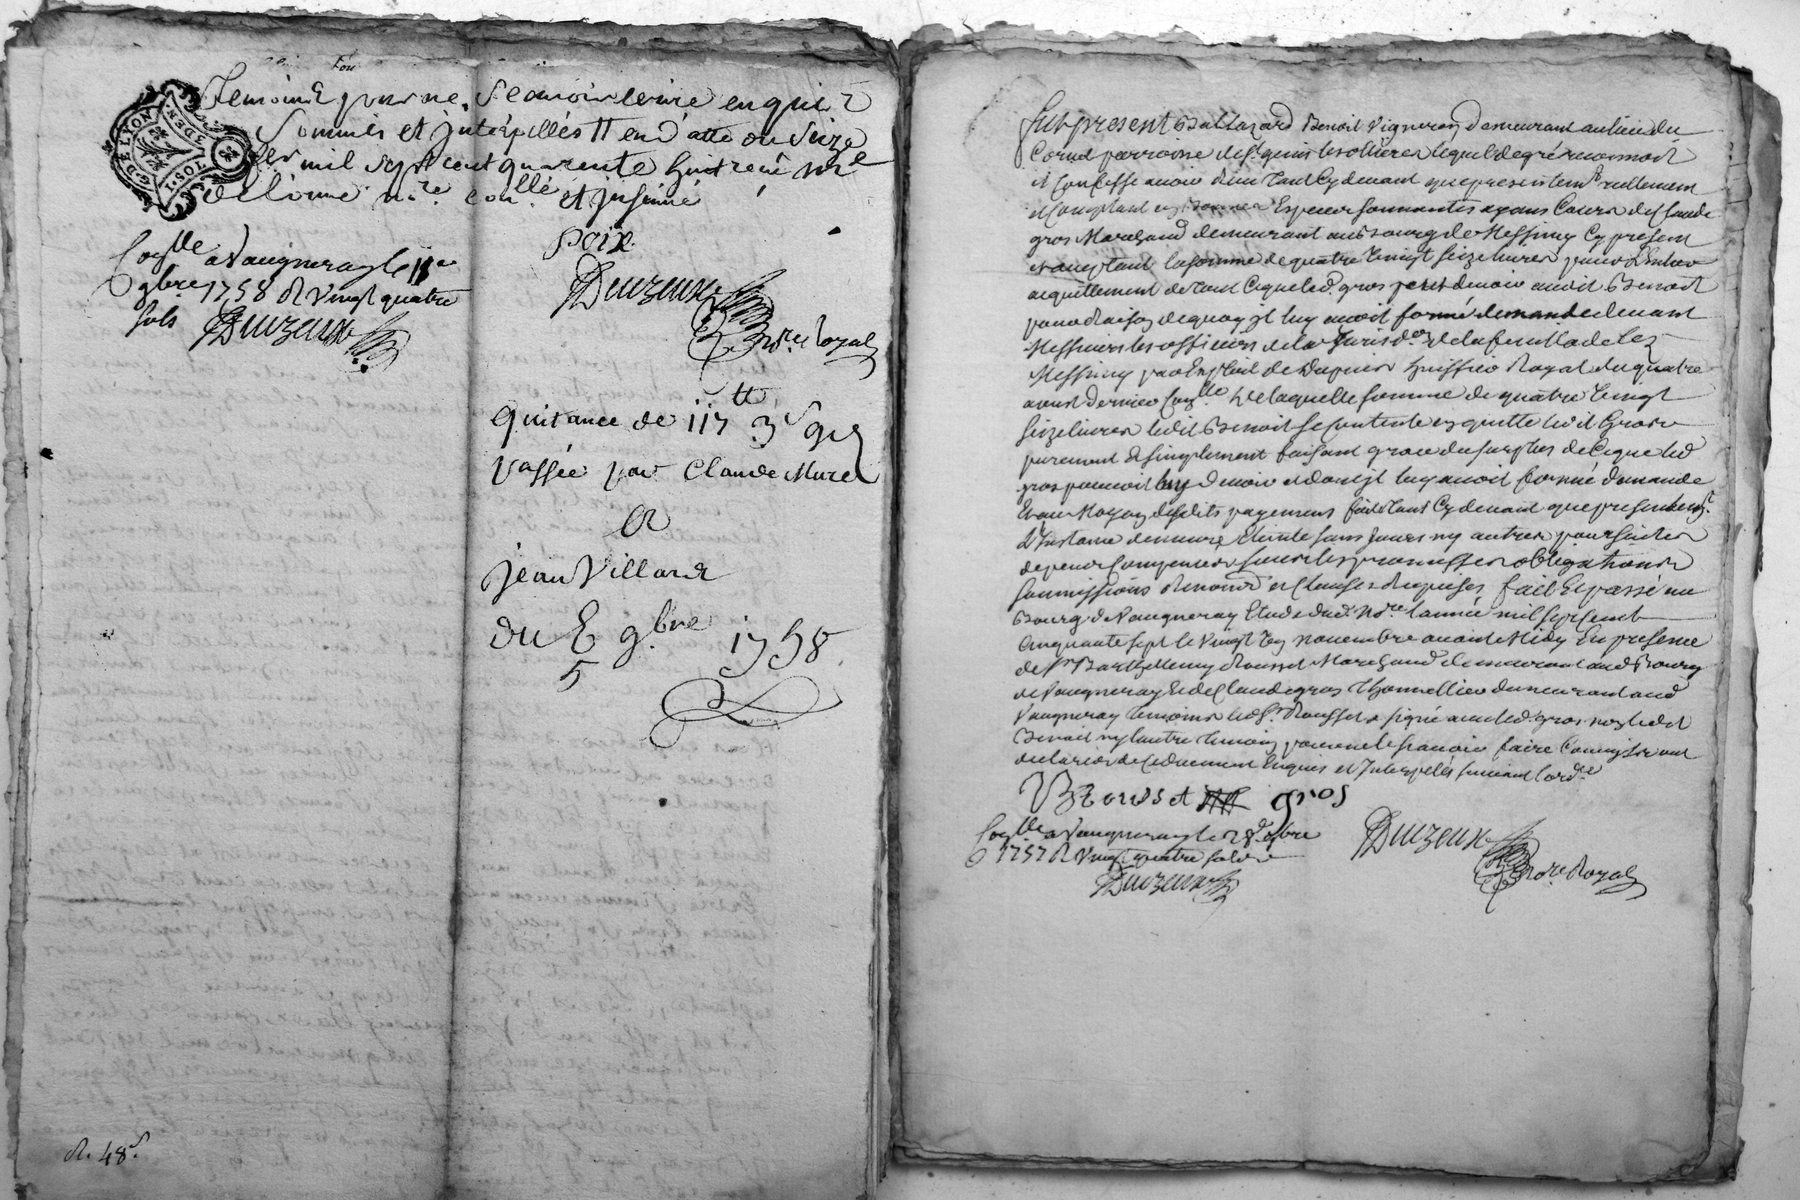 G. DE LYON
DEN. 1. SOL
Temoins pour ne, Scavoir ecrire enquis
Sommés et interpellés 11 en datte du Seize
mil sept cent quarente huit recu Mre
delorme nre. conllé. et Insinué
Coqlle a Vaugneray le 11e
9bre 1758 R Vingt quatre
sols
Duczeux
Poix
Duczeux
nre. Royal
quitance de 117 tt 3s 9d
passée par Claude Murel
a
jean Villard
du 5 9.bre 1758
5
R. 48s.
Fut present Baltazard Benoit Vigneron demeurant au lieu du
Cornet parroisse de St. genis les ollieres lequel de gré reconnoit
et Confesse avoir Reçu tant Cy devant que presentemt. reellement
et Comptant en bonnes Especes sonnantes ayans Cours de Claude
gros Marchand demeurant au bourg de Messimy Cy present
et acceptant la somme de quatre Vingt Seize livres pour L'Entier
acquittement de tout Ce que led. gros peut devoir audit Benoit
pour Raison de quoy il luy avoit formé demande devant
Messieurs les officiers de la Jurisdon. de la feuillade Lez
Messimy par Exploit de Dupuier huissier Royal du quatre
aoust dernier Coqlle De laquelle somme de quatre Vingt
Seize livres ledit Benoit se Contente en quitte ledit Gros
purement et simplement faisant grace du surplus de Ce que led.
gros pouvoit luy devoir et dont il luy avoit formé demande
Et au Moyen desdits payemens faits tant Cy devant que presentemt.
L'Instance demeure Eteinte sans pouvoir ny autres poursuites
depens Compensés sous les promesses obligations
soumissions Renonc. et Clauses Requises fait Et passé au
Bourg de Vaugneray Etude dud. Nore. l'année mil sept cent
Cinquante sept le Vingt Six novembre avant Midy En presence
de Sr. Barthellemy Rousset Marchand demeurant aud. Bourg
de Vaugneray Et de Claude gros Thonnellier demeurant aud.
Vaugneray temoins led. Sr. Rousset a signé avec led. gros non ledit
Benoit ny l'autre temoin pour ne le sçavoir faire Comme ils ont
declaré de ce duement Enquis et Interpelés suivant l'ordce
Rousset gros
Coqlle a Vaugneray le 28e 9bre
1757 R Vingt quatre sols
Duczeux
Duczeux
nore. Royal